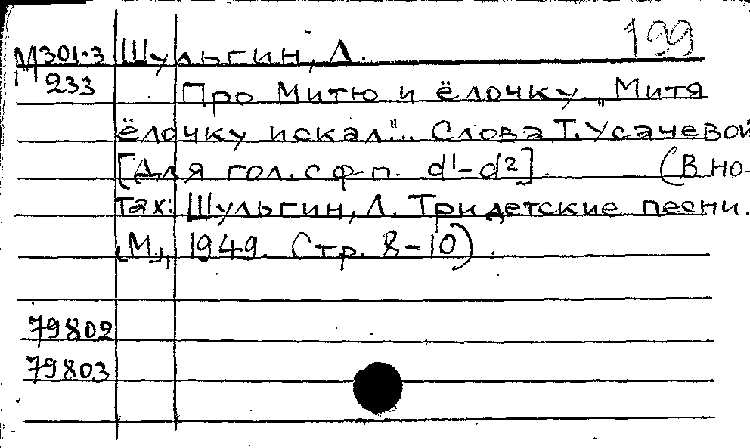 199
М301-3 Шульгин, Л.
233 Про Митю и ёлочку „Митя
ёлочку искал".. Слова Т. Усачевой
[Для гол. с ф-п. d¹-d²] (В но-
тах: Шульгин, Л. Три детские песни.
М., 1949. Стр. 8-10).
79802
79803